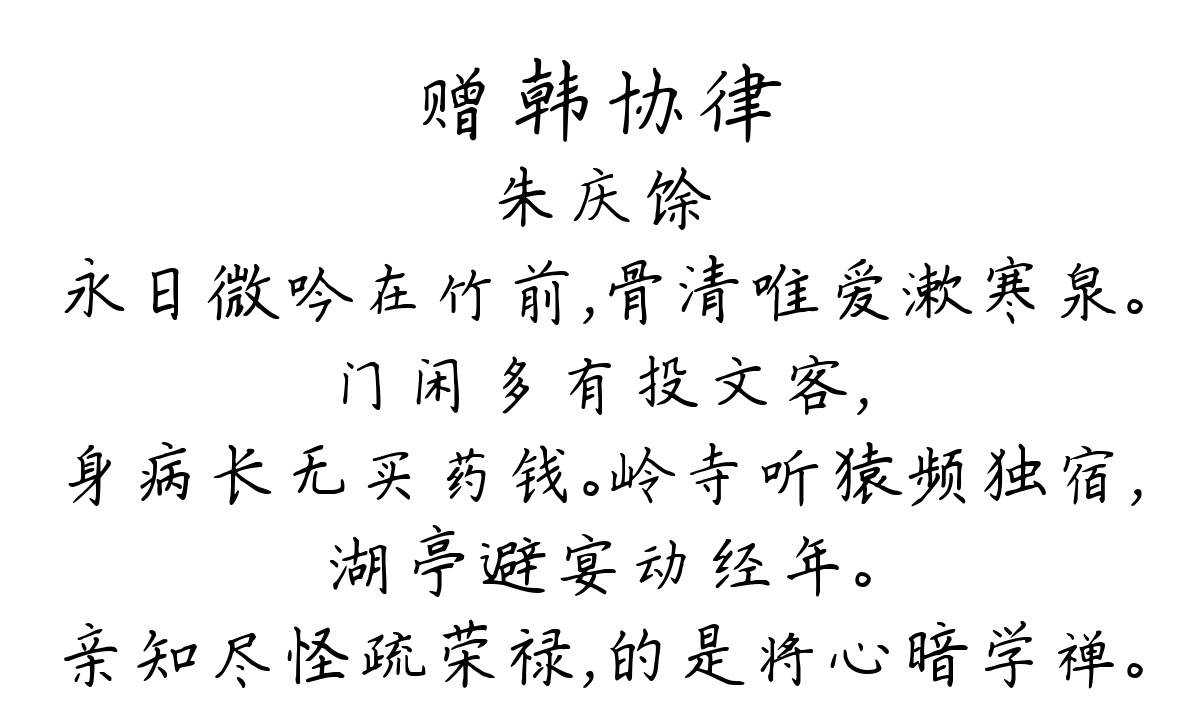 赠韩协律
朱庆馀
永日微吟在竹前,骨清唯爱漱寒泉。
门闲多有投文客,
身病长无买药钱。岭寺听猿频独宿,
湖亭避宴动经年。
亲知尽怪疏荣禄,的是将心暗学禅。